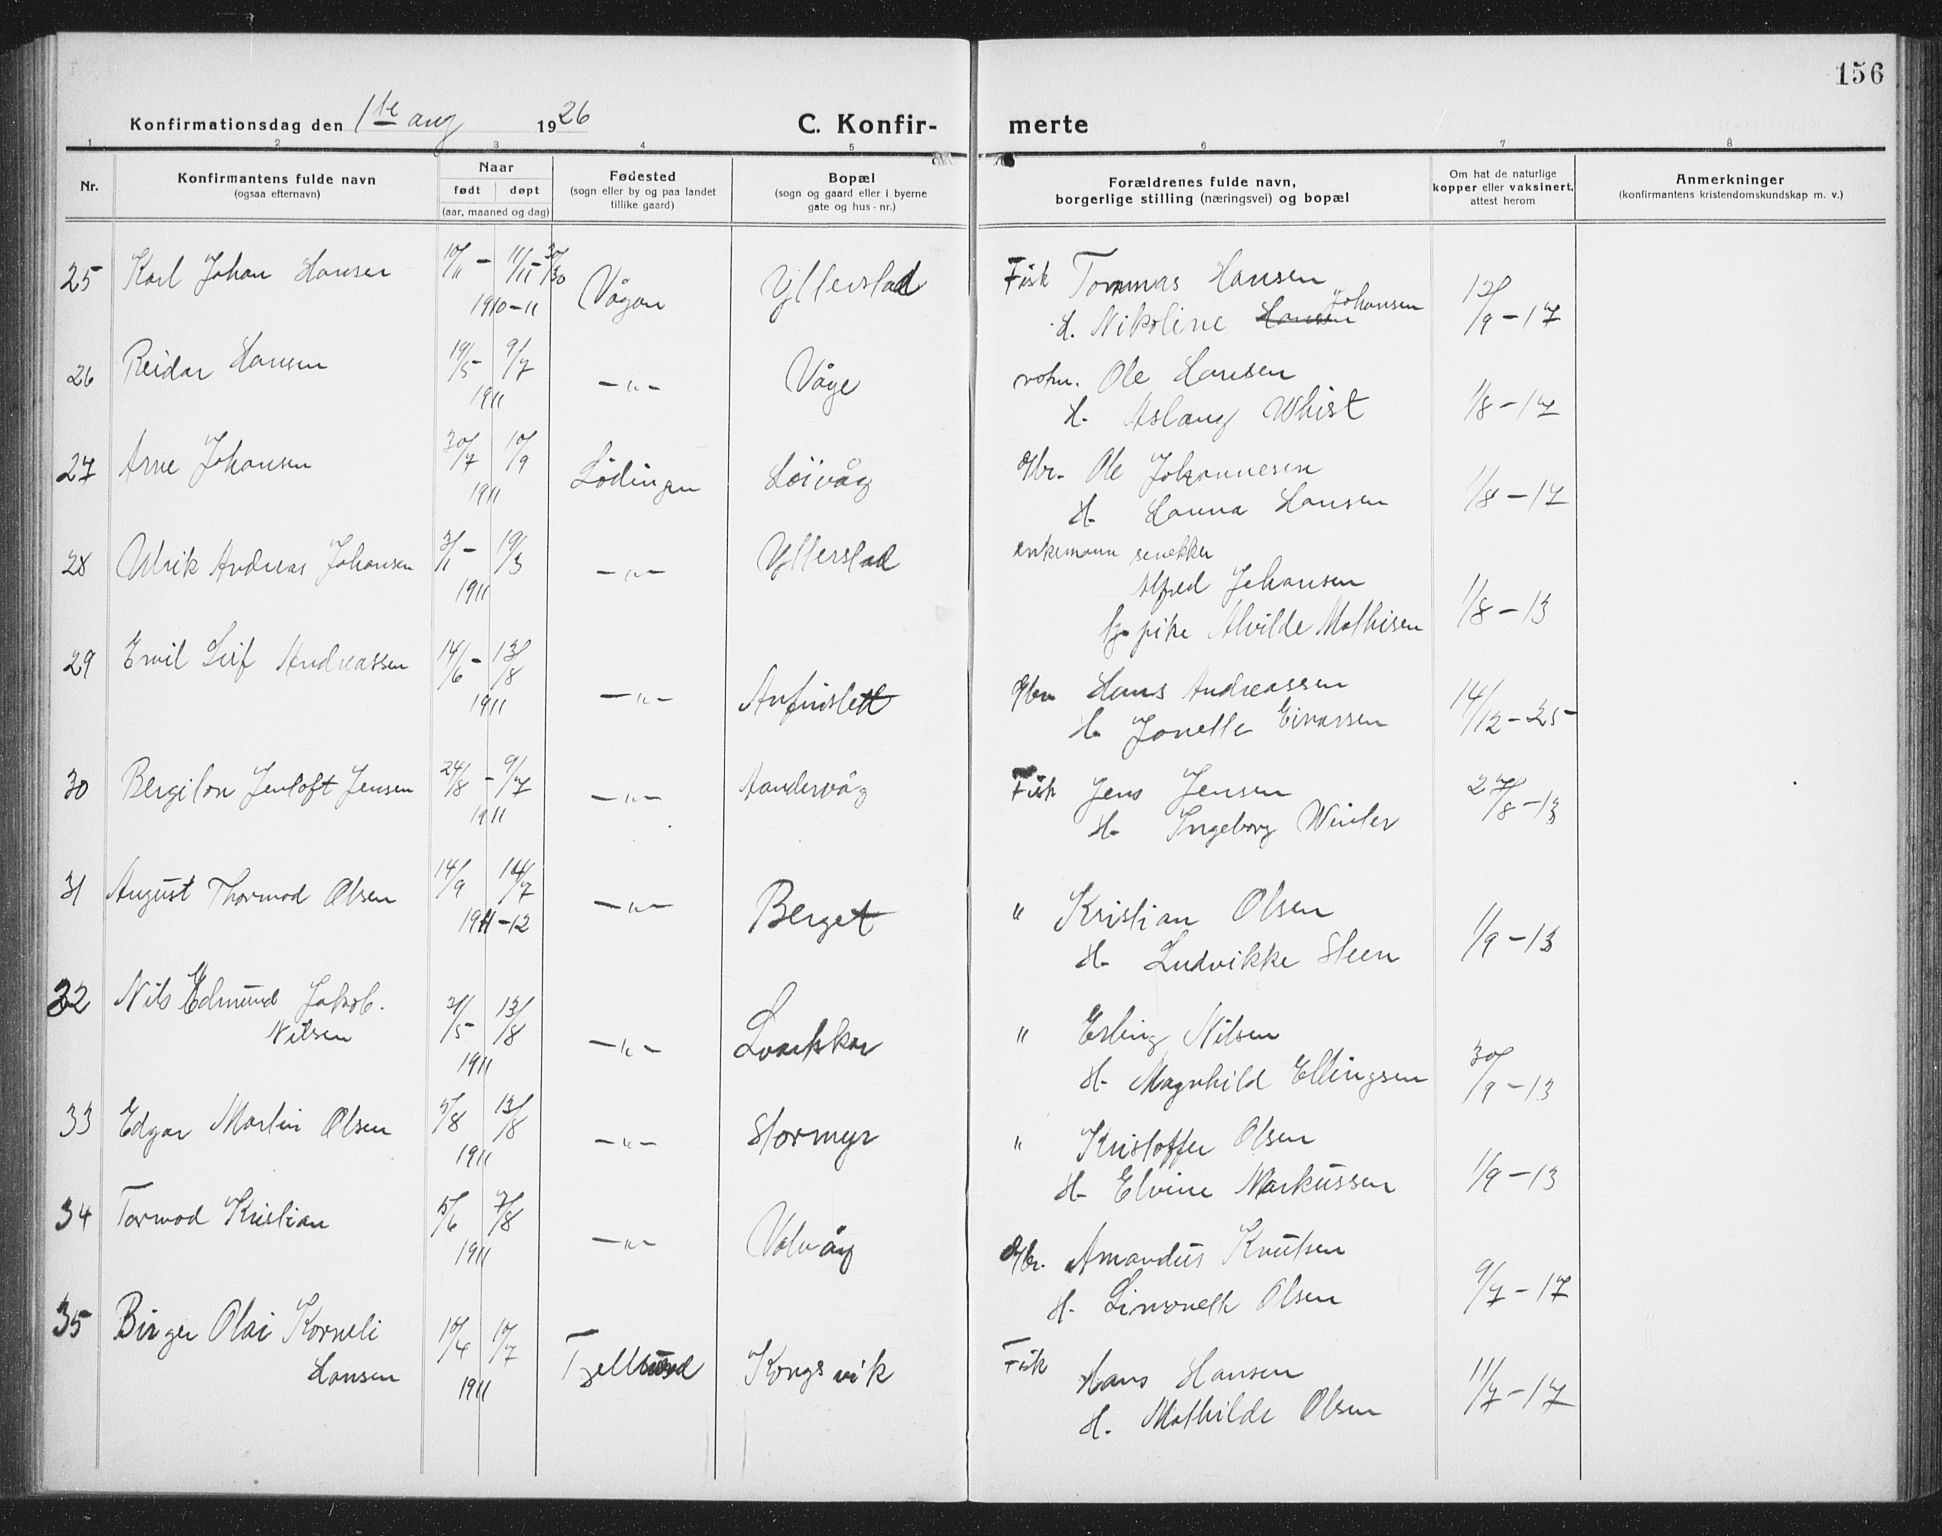 156
Konfirmationsdag den 1ste aug 1926 C. Konfir- merte
1 2 3 4 5 6 7 8
Nr. Konfirmantens fulde navn (ogsaa efternavn) Naar født døpt (aar, maaned og dag) Fødested (sogn eller by og paa landet tillike gaard) Bopæl (sogn og gaard eller i byerne gate og hus-nr.) Forældrenes fulde navn, borgerlige stilling (næringsvei) og bopæl Om hat de naturlige kopper eller vaksinert, attest herom Anmerkninger (konfirmantens kristendomskundskap m. v.)
25 Karl Johan Hansen 10/11 - 11/11 - 1910-11 Vågan Ytterstad Fisk Tommas Hansen 12/9-17
H. Nikoline Hansen Johansen
26 Reidar Hansen 19/5 - 9/7 1911 -"- Våge Ole Hansen 1/8-17
H. Aslaug Whist
27 Arne Johansen 30/7 10/9 1911 Lødingen Løivåg Gbr. Ole Johannesen 1/8-17
H. Hanna Hansen
28 Ulrik Andreas Johansen 3/1 - 19/3 1911 -"- Ytterstad enkemann
Alfred Johansen 1/8-13
pike Alvilde Mathisen
29 Emil Leif Andreassen 14/6 - 13/8 1911 -"- Anfinslett Gbr Hans Andreassen 14/12-25
H. Jonette Einarsen
30 Jentoft Jensen 24/8 - 9/7 1911 -"- Aandervåg Fisk Jens Jensen 27/8-13
H. Ingeborg Winter
31 August Thormod Olsen 14/9 14/7 1911-12 -"- Berget " Kristian Olsen 1/9-13
H. Ludvikke Steen
32 Nils Edmund Jakob. 21/5 - 13/8 1911 -"- " Erling Nilsen 30/9-13
Nilsen H. Magnhild Ellingsen
33 Edgar Martin Olsen 5/8 13/8 1911 -"- Stormyr " Kristoffer Olsen 1/9-13
H. Elvine Markussen
34 Tormod Kristian 5/6 7/8 1911 -"- Valvåg Gbr. Amandus Knutsen 9/7-17
H. Olsen
35 Birger Olai Korneli 10/4 10/7 1911 Tjeldsund Kongsvik Fisk Hans Hansen 11/7-17
Hansen H. Mathilde Olsen